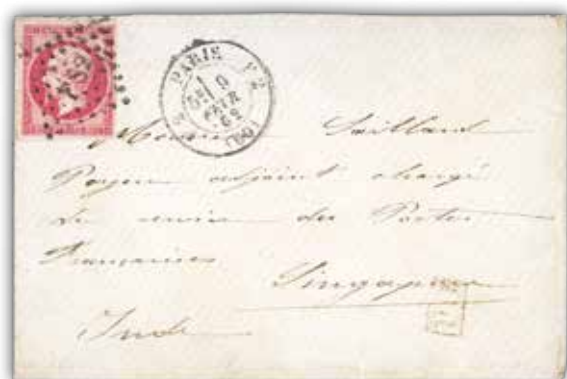 PARIS
(60)
Monsieur Saillard
Payeur adjoint chargé
du service des Postes
Françaises
Singapour
Inde